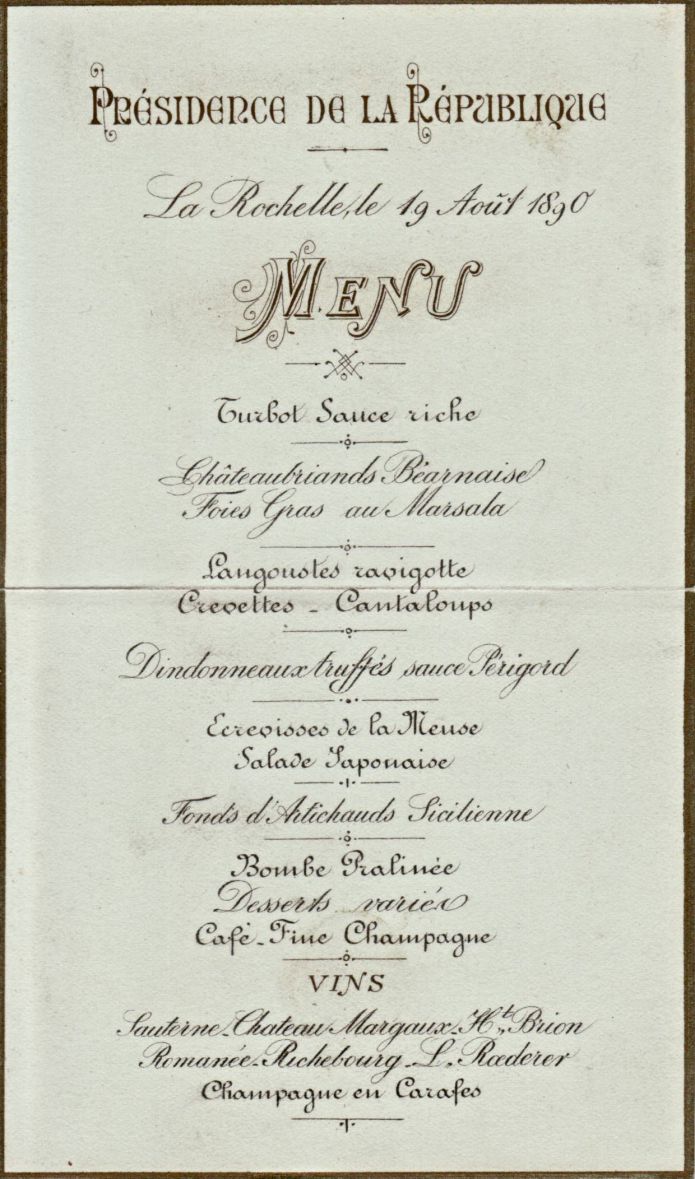 Présidence de la République
La Rochelle, le 19 Août 1890
Menu
Turbot Sauce riche
Châteaubriands Béarnaise
Foies Gras au Marsala
Langoustes ravigotte
Crevettes - Cantaloups
Dindonneaux truffés sauce Périgord
Ecrevisses de la Meuse
Salade Japonaise
Fonds d'Artichauds Sicilienne
Bombe Pralinée
Desserts variés
Café - Fine Champagne
VINS
Sauterne - Chateau Margaux - Ht Brion
Romanée - Richebourg - L. Rœderer
Champagne en Carafes